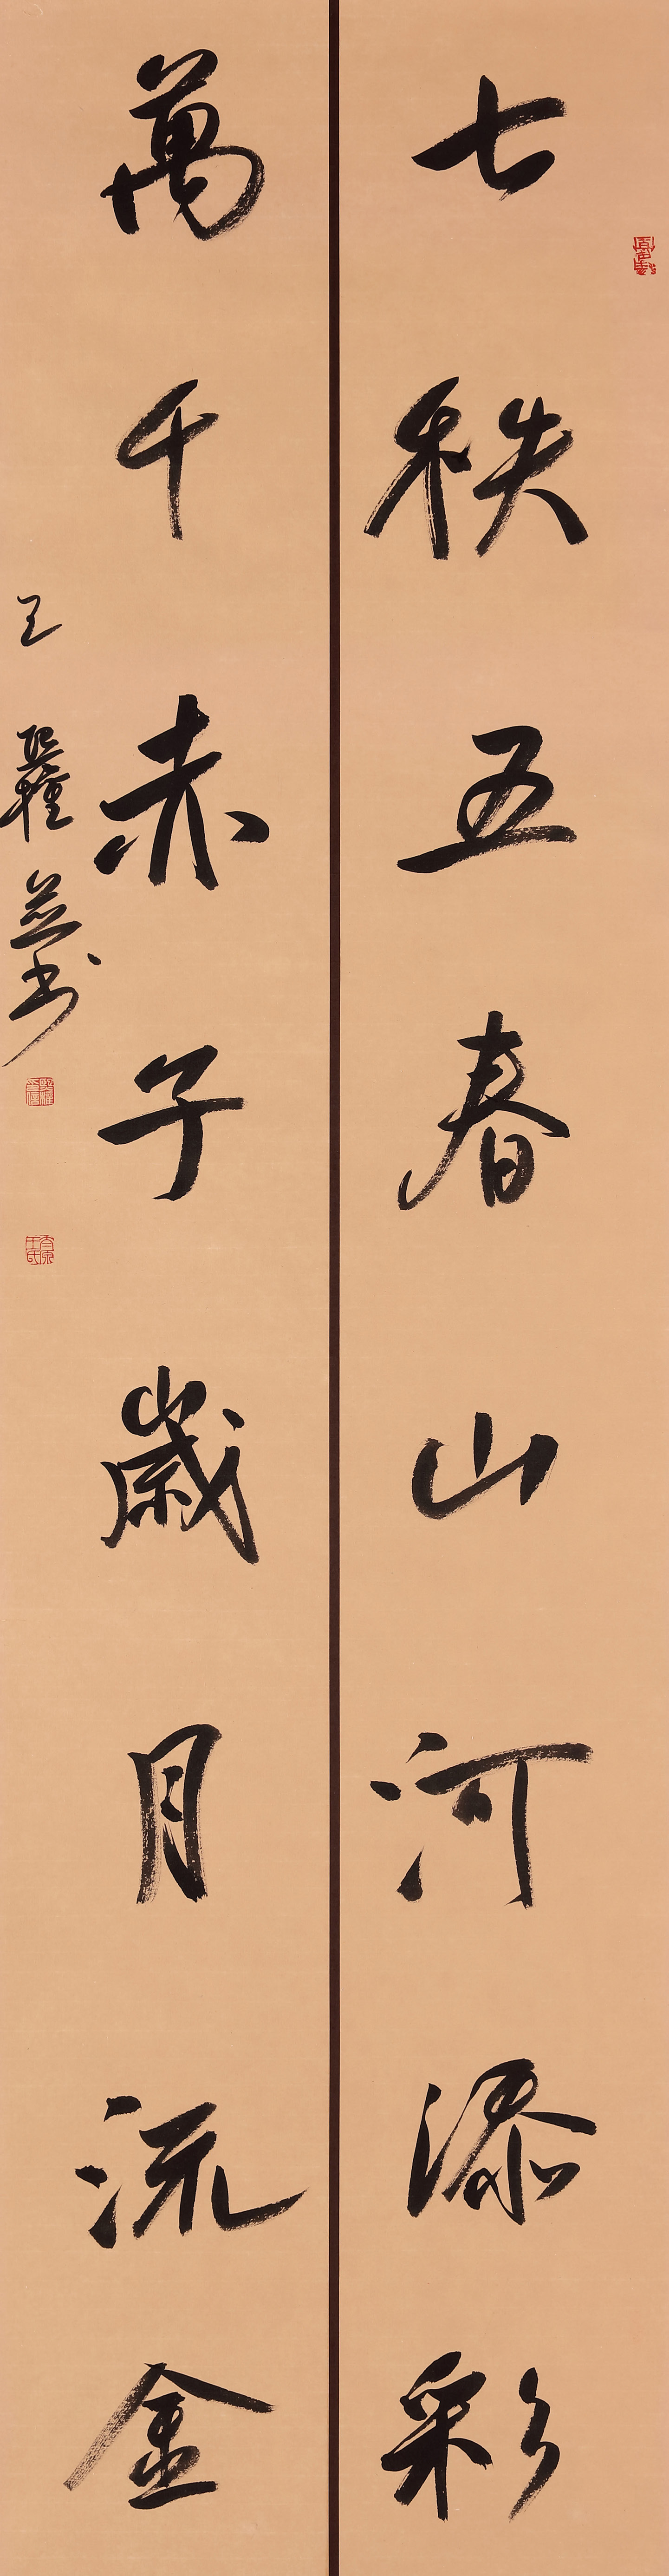 七秩五春山河添彩
萬千赤子歲月流金